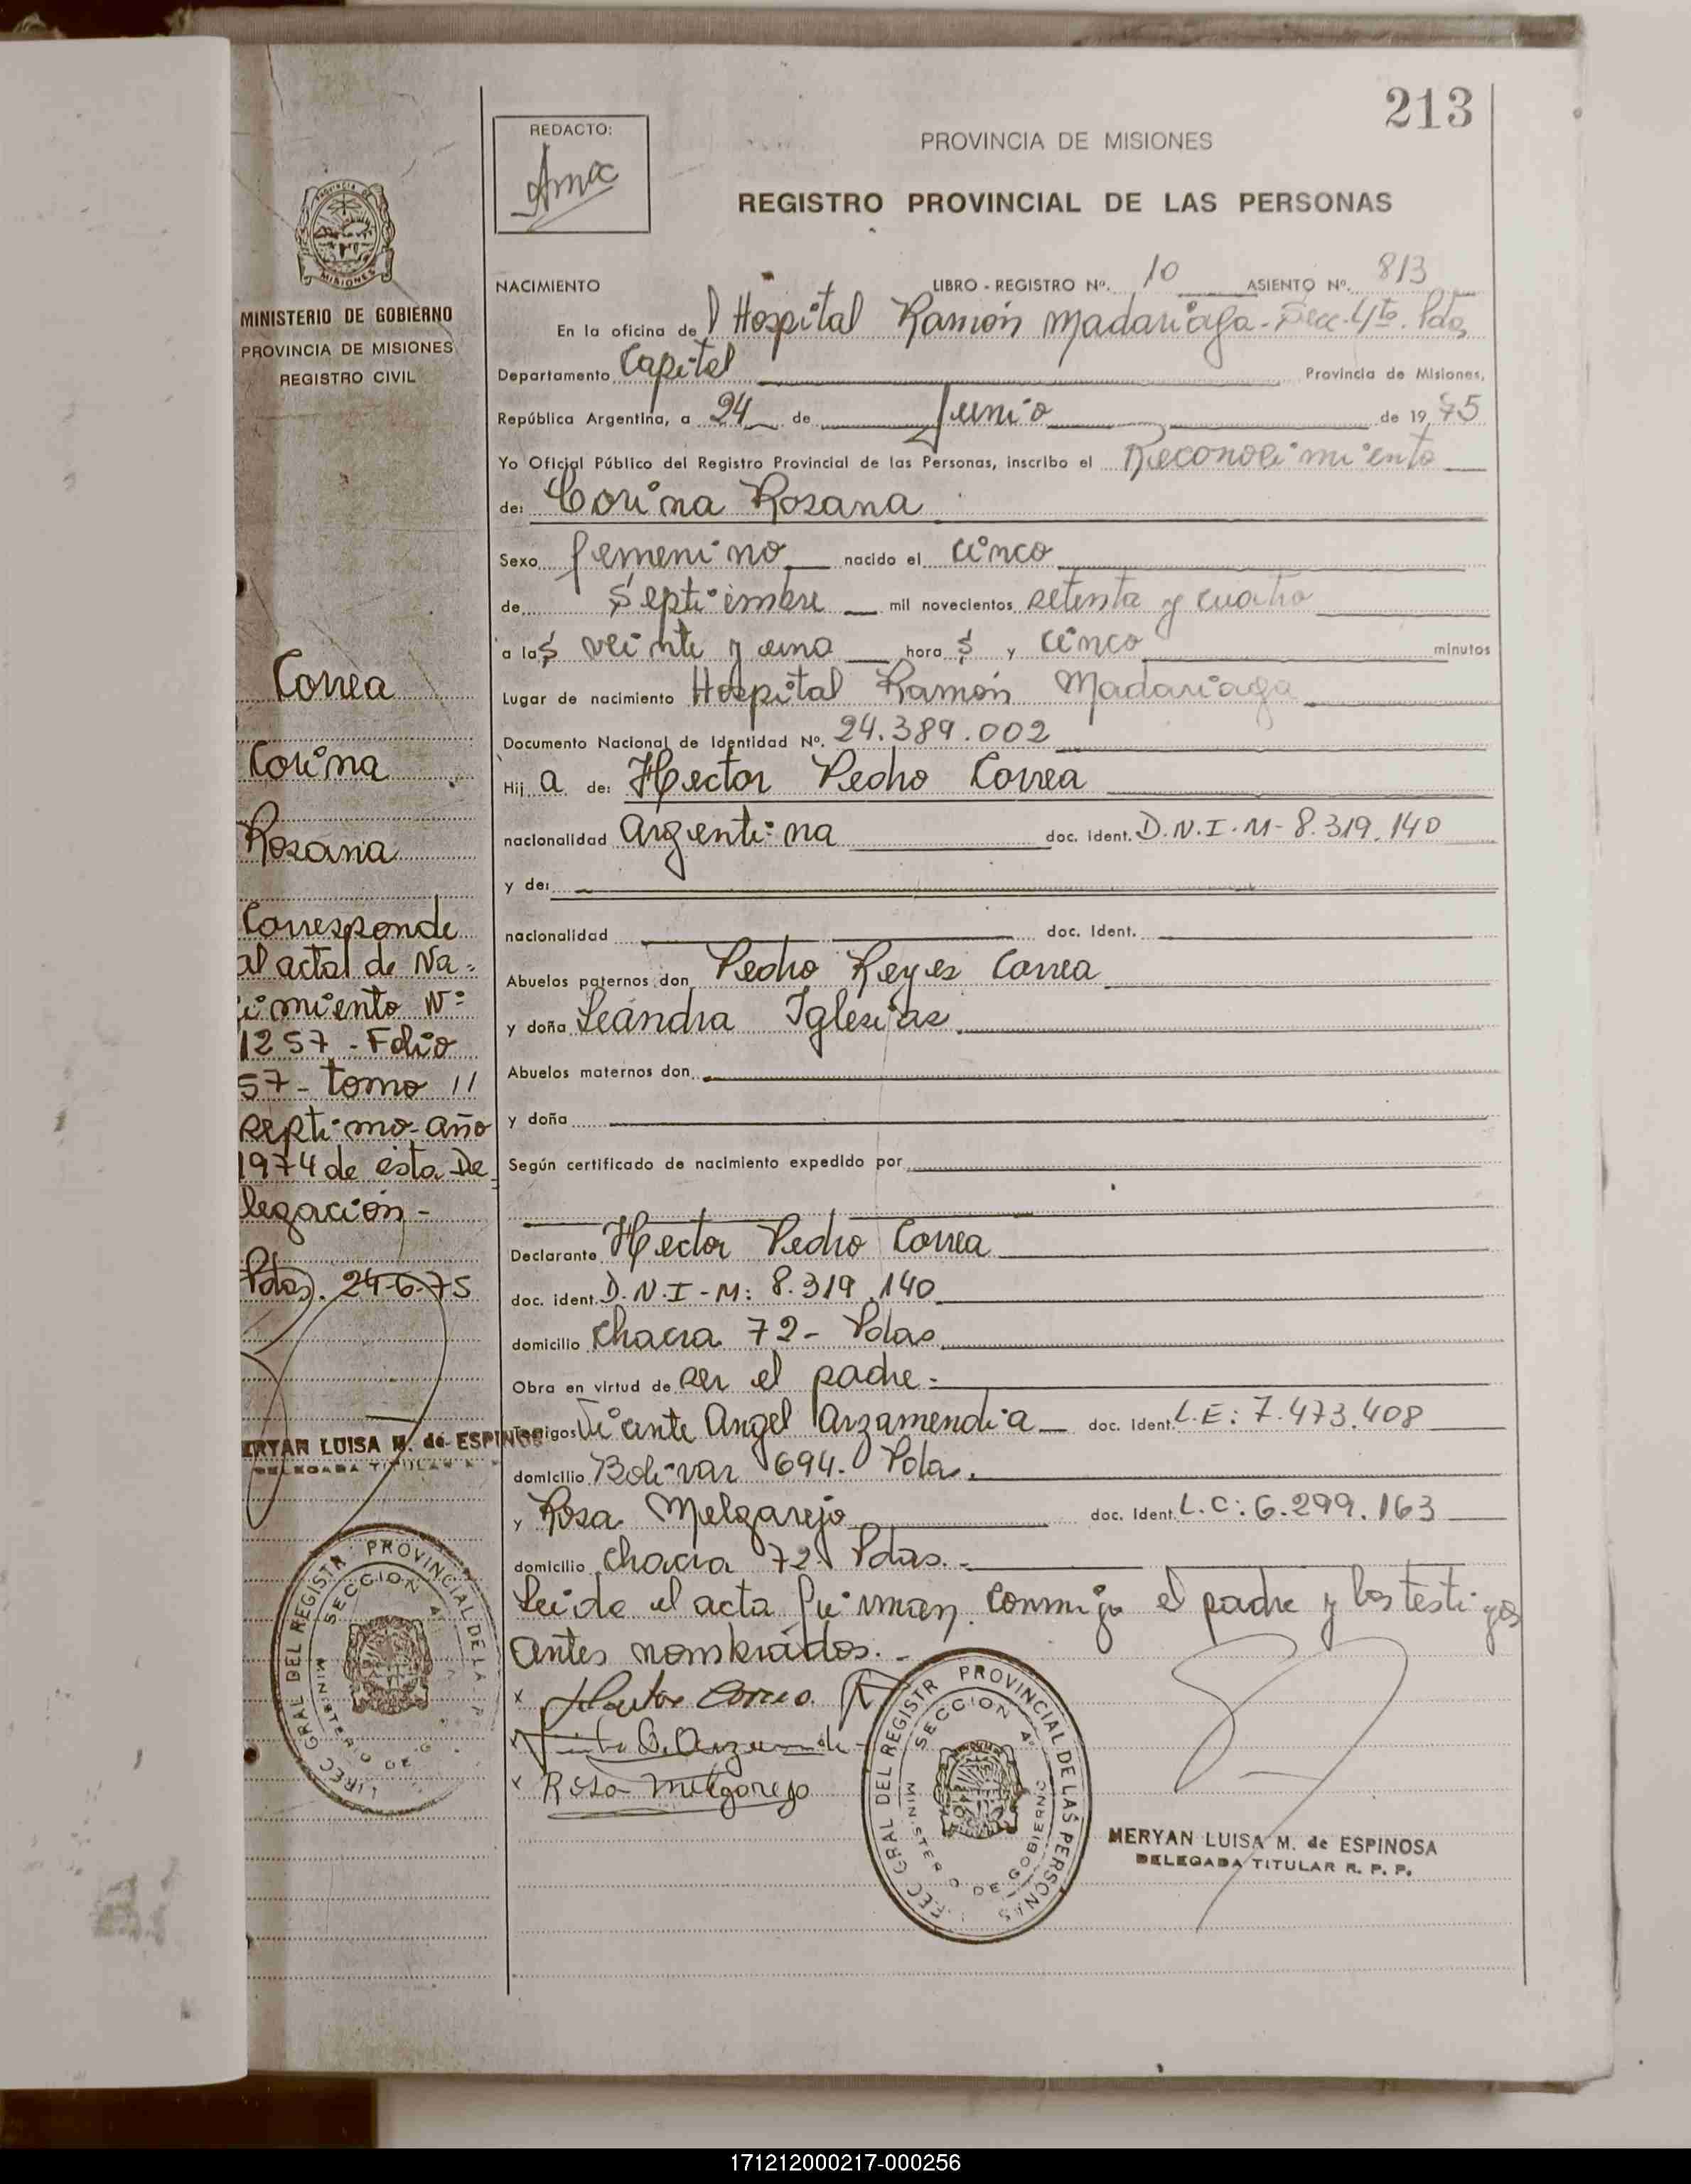 213
REDACTO:
PROVINCIA DE MISIONES
REGISTRO PROVINCIAL DE LAS PERSONAS
MISIONES
MINISTERIO DE GOBIERNO
PROVINCIA DE MISIONES
REGISTRO CIVIL
Correa
Corina
Rosana
Corresponde
al acta de Na-
cimiento Nº
1257 - Folio
57 - tomo 11
septimo año
1974 de esta De
legación -
Pdas. 24-6-75
MERYAN LUISA M. de ESPINOSA
DELEGADA TITULAR
PROVINCIAL DE LA
GRAL DEL REGISTR
SECCION 4º
MINISTERIO DE G
NACIMIENTO LIBRO - REGISTRO Nº. 10 ASIENTO Nº. 813
En la oficina del Hospital Ramón Madariaga - Secc. 4ta. Pdas
Departamento Capital Provincia de Misiones,
República Argentina, a 24 de Junio de 1975
Yo Oficial Público del Registro Provincial de las Personas, inscribo el Reconocimiento
de: Corina Rosana
Sexo femenino nacido el cinco
de septiembre mil novecientos setenta y cuatro
a las veinte y una hora s y cinco minutos
Lugar de nacimiento Hospital Ramón Madariaga
Documento Nacional de Identidad Nº. 24.389.002
Hij a de: Hector Pedro Correa
nacionalidad argentina doc. ident. D.N.I.M- 8.319.140
y de:
nacionalidad doc. Ident.
Abuelos paternos don Pedro Reyes Correa
y doña Leandra Iglesias
Abuelos maternos don
y doña
Según certificado de nacimiento expedido por
Declarante Hector Pedro Correa
doc. ident. D.N.I-M: 8.319.140
domicilio chacra 72- Pdas
Obra en virtud de ser el padre.-
Testigos Vicente Angel Arzamendia doc. Ident. L.E: 7.473.408
domicilio Bolivar 694. Pdas.
y Rosa Melgarejo doc. Ident. L.C: 6.299.163
domicilio chacra 72. Pdas.-
Leida el acta firman conmigo el padre y los testigos
antes nombrados.-
x Hector Correa
x
x Rosa Melgarejo
DIREC GRAL DEL REGISTR PROVINCIAL DE LAS PERSONAS
SECCION 4º
MINISTERIO DE GOBIERNO
MERYAN LUISA M. de ESPINOSA
DELEGADA TITULAR R. P. P.
171212000217-000256